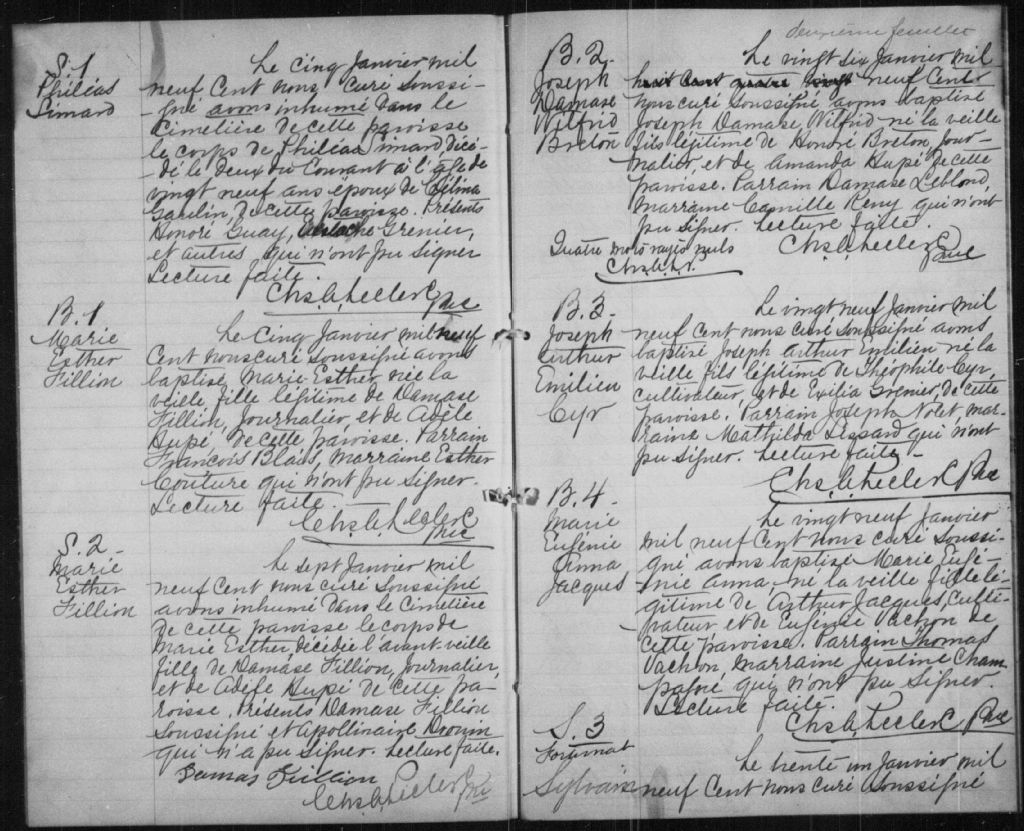 S. 1
Philias
Simard
Le cinq Janvier mil
neuf cent nous curé soussi-
-gné avons inhumé dans le
cimetière de cette paroisse
le corps de Philias Simard décé-
-dé le deux du courant à l'âge de
vingt neuf ans époux de Célina
Gaulin, de cette paroisse. Présents
Honoré Guay, Grenier,
et autres qui n'ont pu signer
Lecture faite.
Chs. G. Leclerc Ptre
B. 1
Marie
Esther
Fillion
Le cinq Janvier mil neuf
cent nous curé soussigné avons
baptisé Marie Esther née la
veille fille légitime de Damase
Fillion, Journalier, et de Adèle
Hupé de cette paroisse. Parrain
Francois Blais, marraine Esther
Couture qui n'ont pu signer.
Lecture faite.
Chs. G. Leclerc
Ptre
S. 2
Marie
Esther
Fillion
Le sept Janvier mil
neuf cent nous curé soussigné
avons inhumé dans le cimetière
de cette paroisse le corps de
Marie Esther, décédée l'avant-veille
fille de Damase Fillion, Journalier,
et de Adèle Hupé de cette pa-
roisse. Présents Damase Fillion
soussigné et Apollinaire Drouin
qui n'a pu signer. Lecture faite.
Damas Fillion
Chs. G. Leclerc Ptre
deuxième feuillet
B. 2
Joseph
Damase
Wilfrid
Breton
Le vingt six Janvier mil
huit cent quatre vingt neuf cent
nous curé soussigné avons baptisé
Joseph Damase Wilfrid né la veille
fils légitime de Honoré Breton, Jour-
nalier, et de Amanda Hupé de cette
paroisse. Parrain Damase Leblond,
marraine Camille Remy qui n'ont
pu signer. Lecture faite.
Quatre mots rayés nuls
Chs. G. Leclerc
Ptre
B. 3
Joseph
Arthur
Emilien
Cyr
Le vingt neuf Janvier mil
neuf cent nous curé soussigné avons
baptisé Joseph Arthur Emilien né la
veille fils légitime de Théophile Cyr,
cultivateur, et de Exilia Grenier, de cette
paroisse. Parrain Joseph Nolet, mar-
raine Mathilda qui n'ont
pu signer. Lecture faite -
Chs. G. Leclerc Ptre
B. 4
Marie
Eugénie
Anna
Jacques
Le vingt neuf Janvier
mil neuf cent nous curé soussi-
gné avons baptisé Marie Eugé-
nie Anna, né la veille fille lé-
gitime de Arthur Jacques, Culti-
vateur et de Eugénie Vachon de
cette paroisse. Parrain Thomas
Vachon, marraine Justine Cham-
pagne qui n'ont pu signer.
Lecture faite.
Chs. G. Leclerc Ptre
S. 3
Fortunat
Sylvain
Le trente un Janvier mil
neuf cent nous curé soussigné